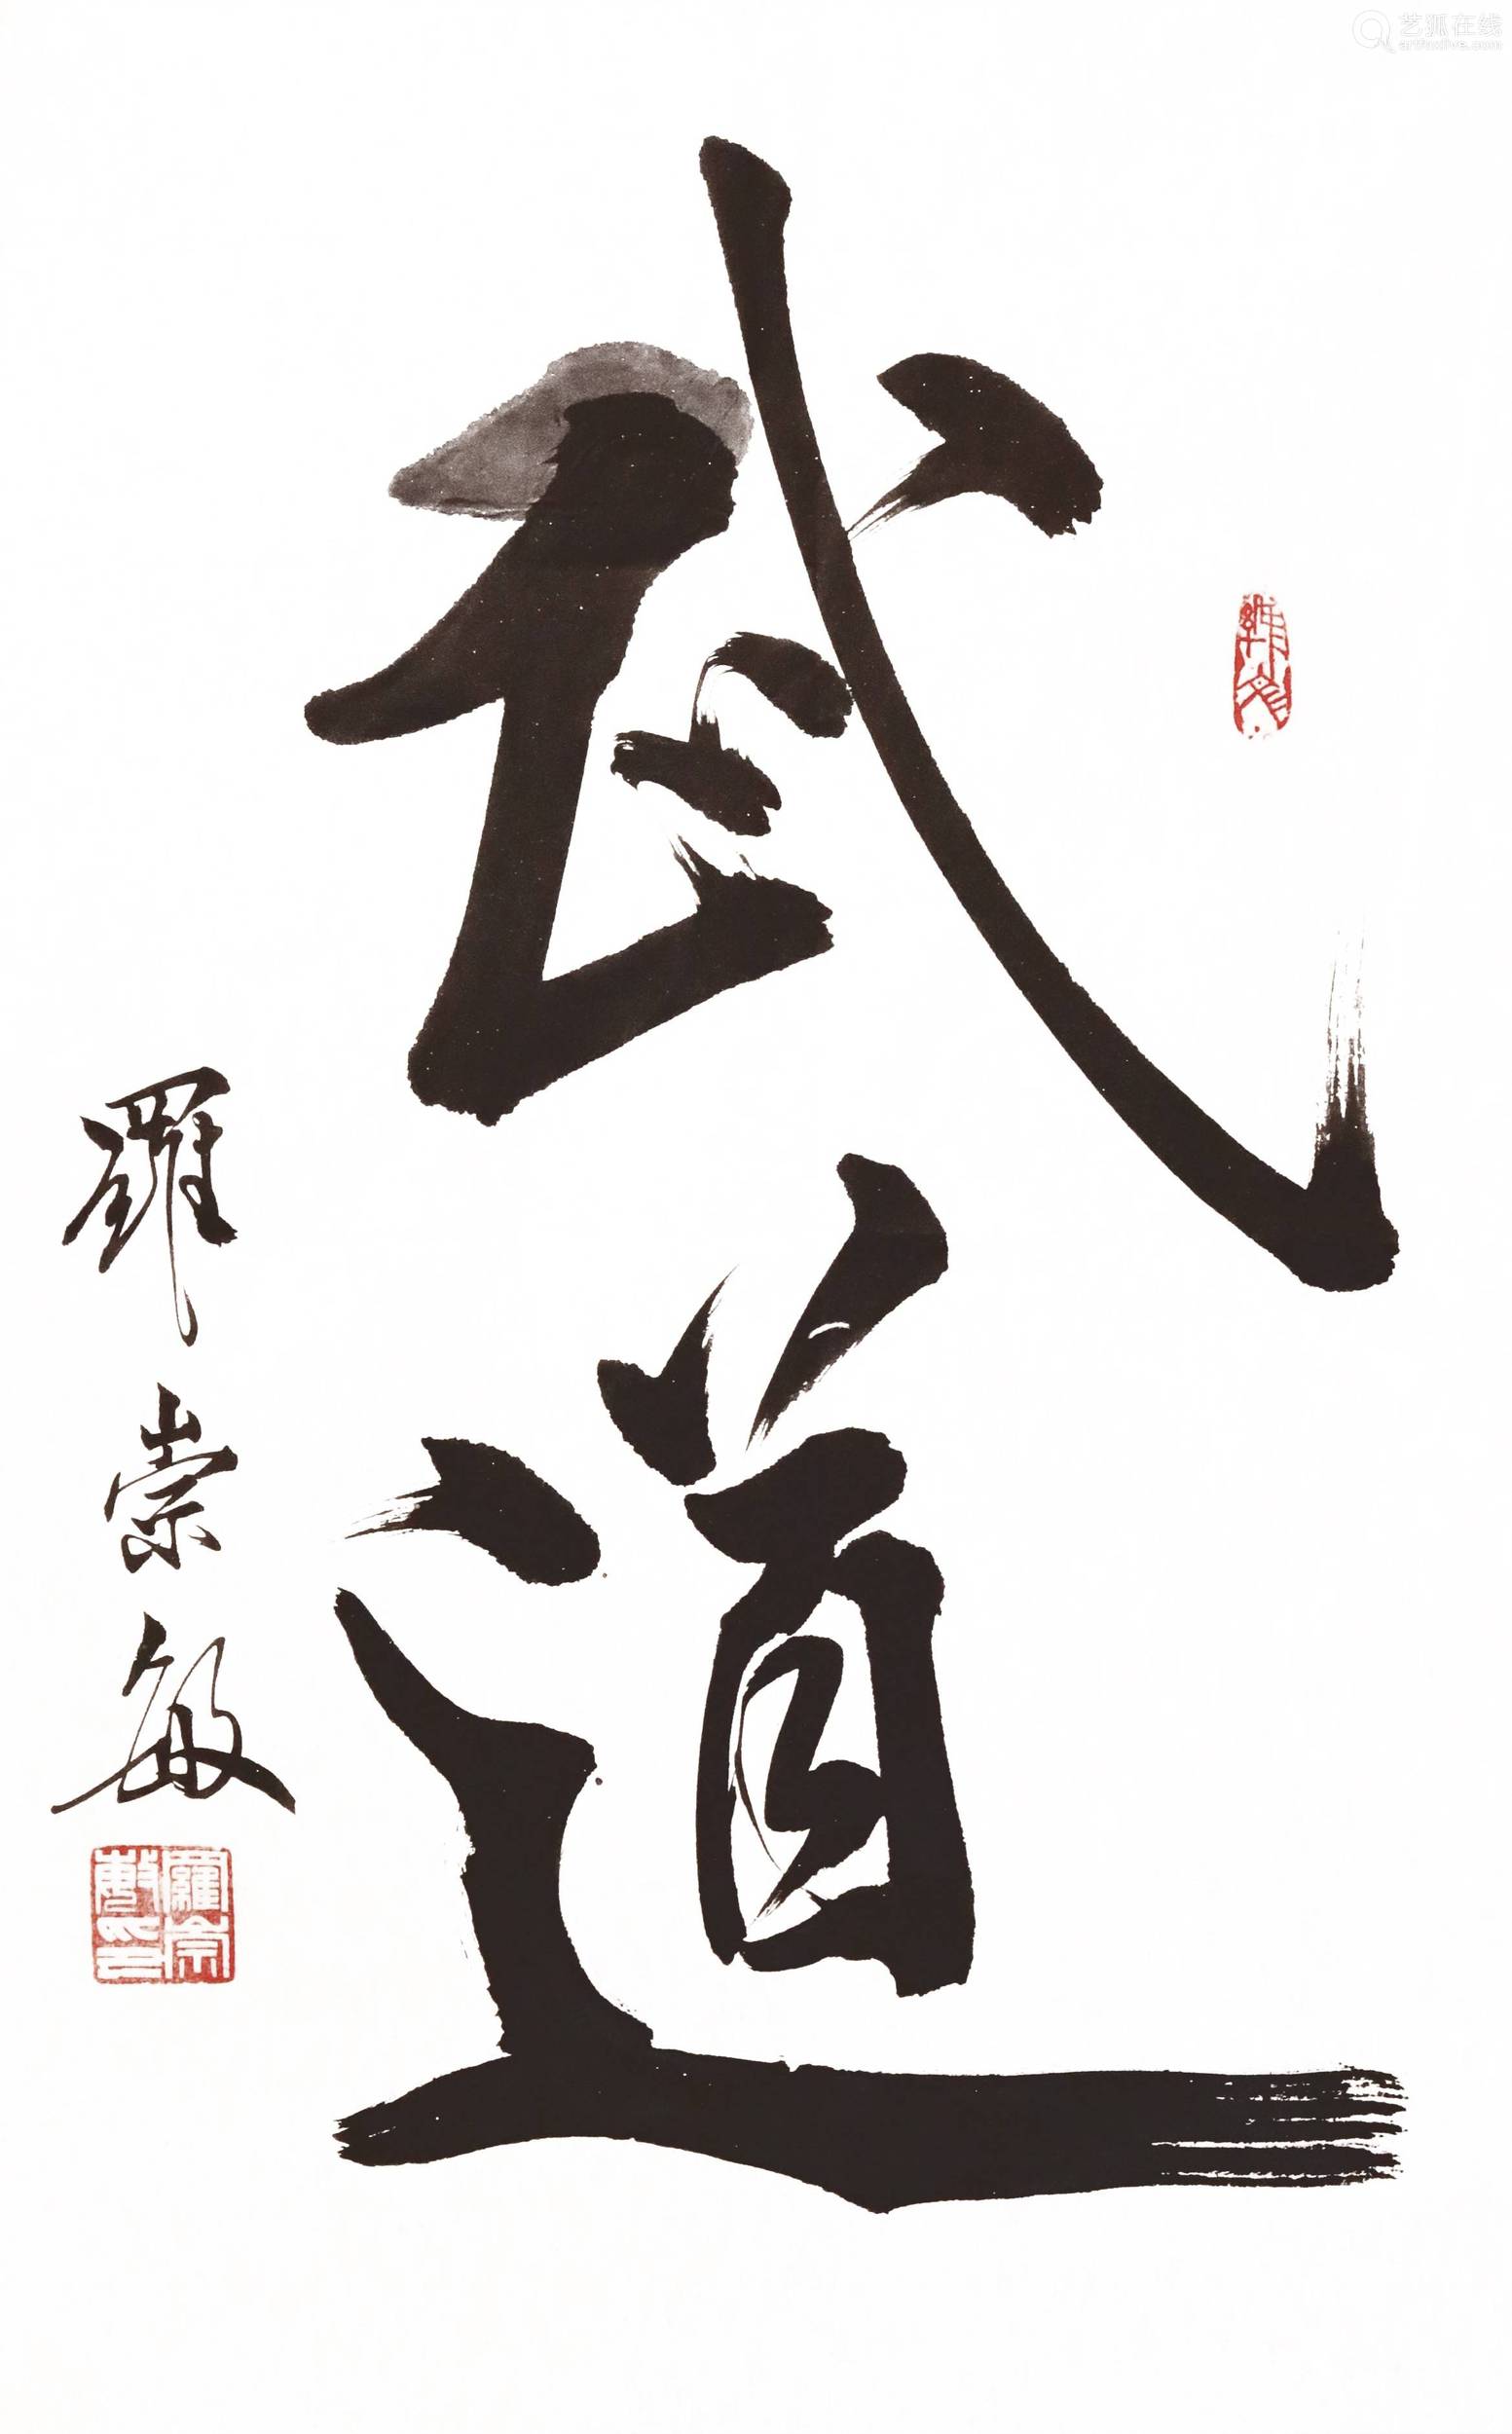 武道
羅崇敏
羅崇敏印
艺狐在线
artfoxlive.com